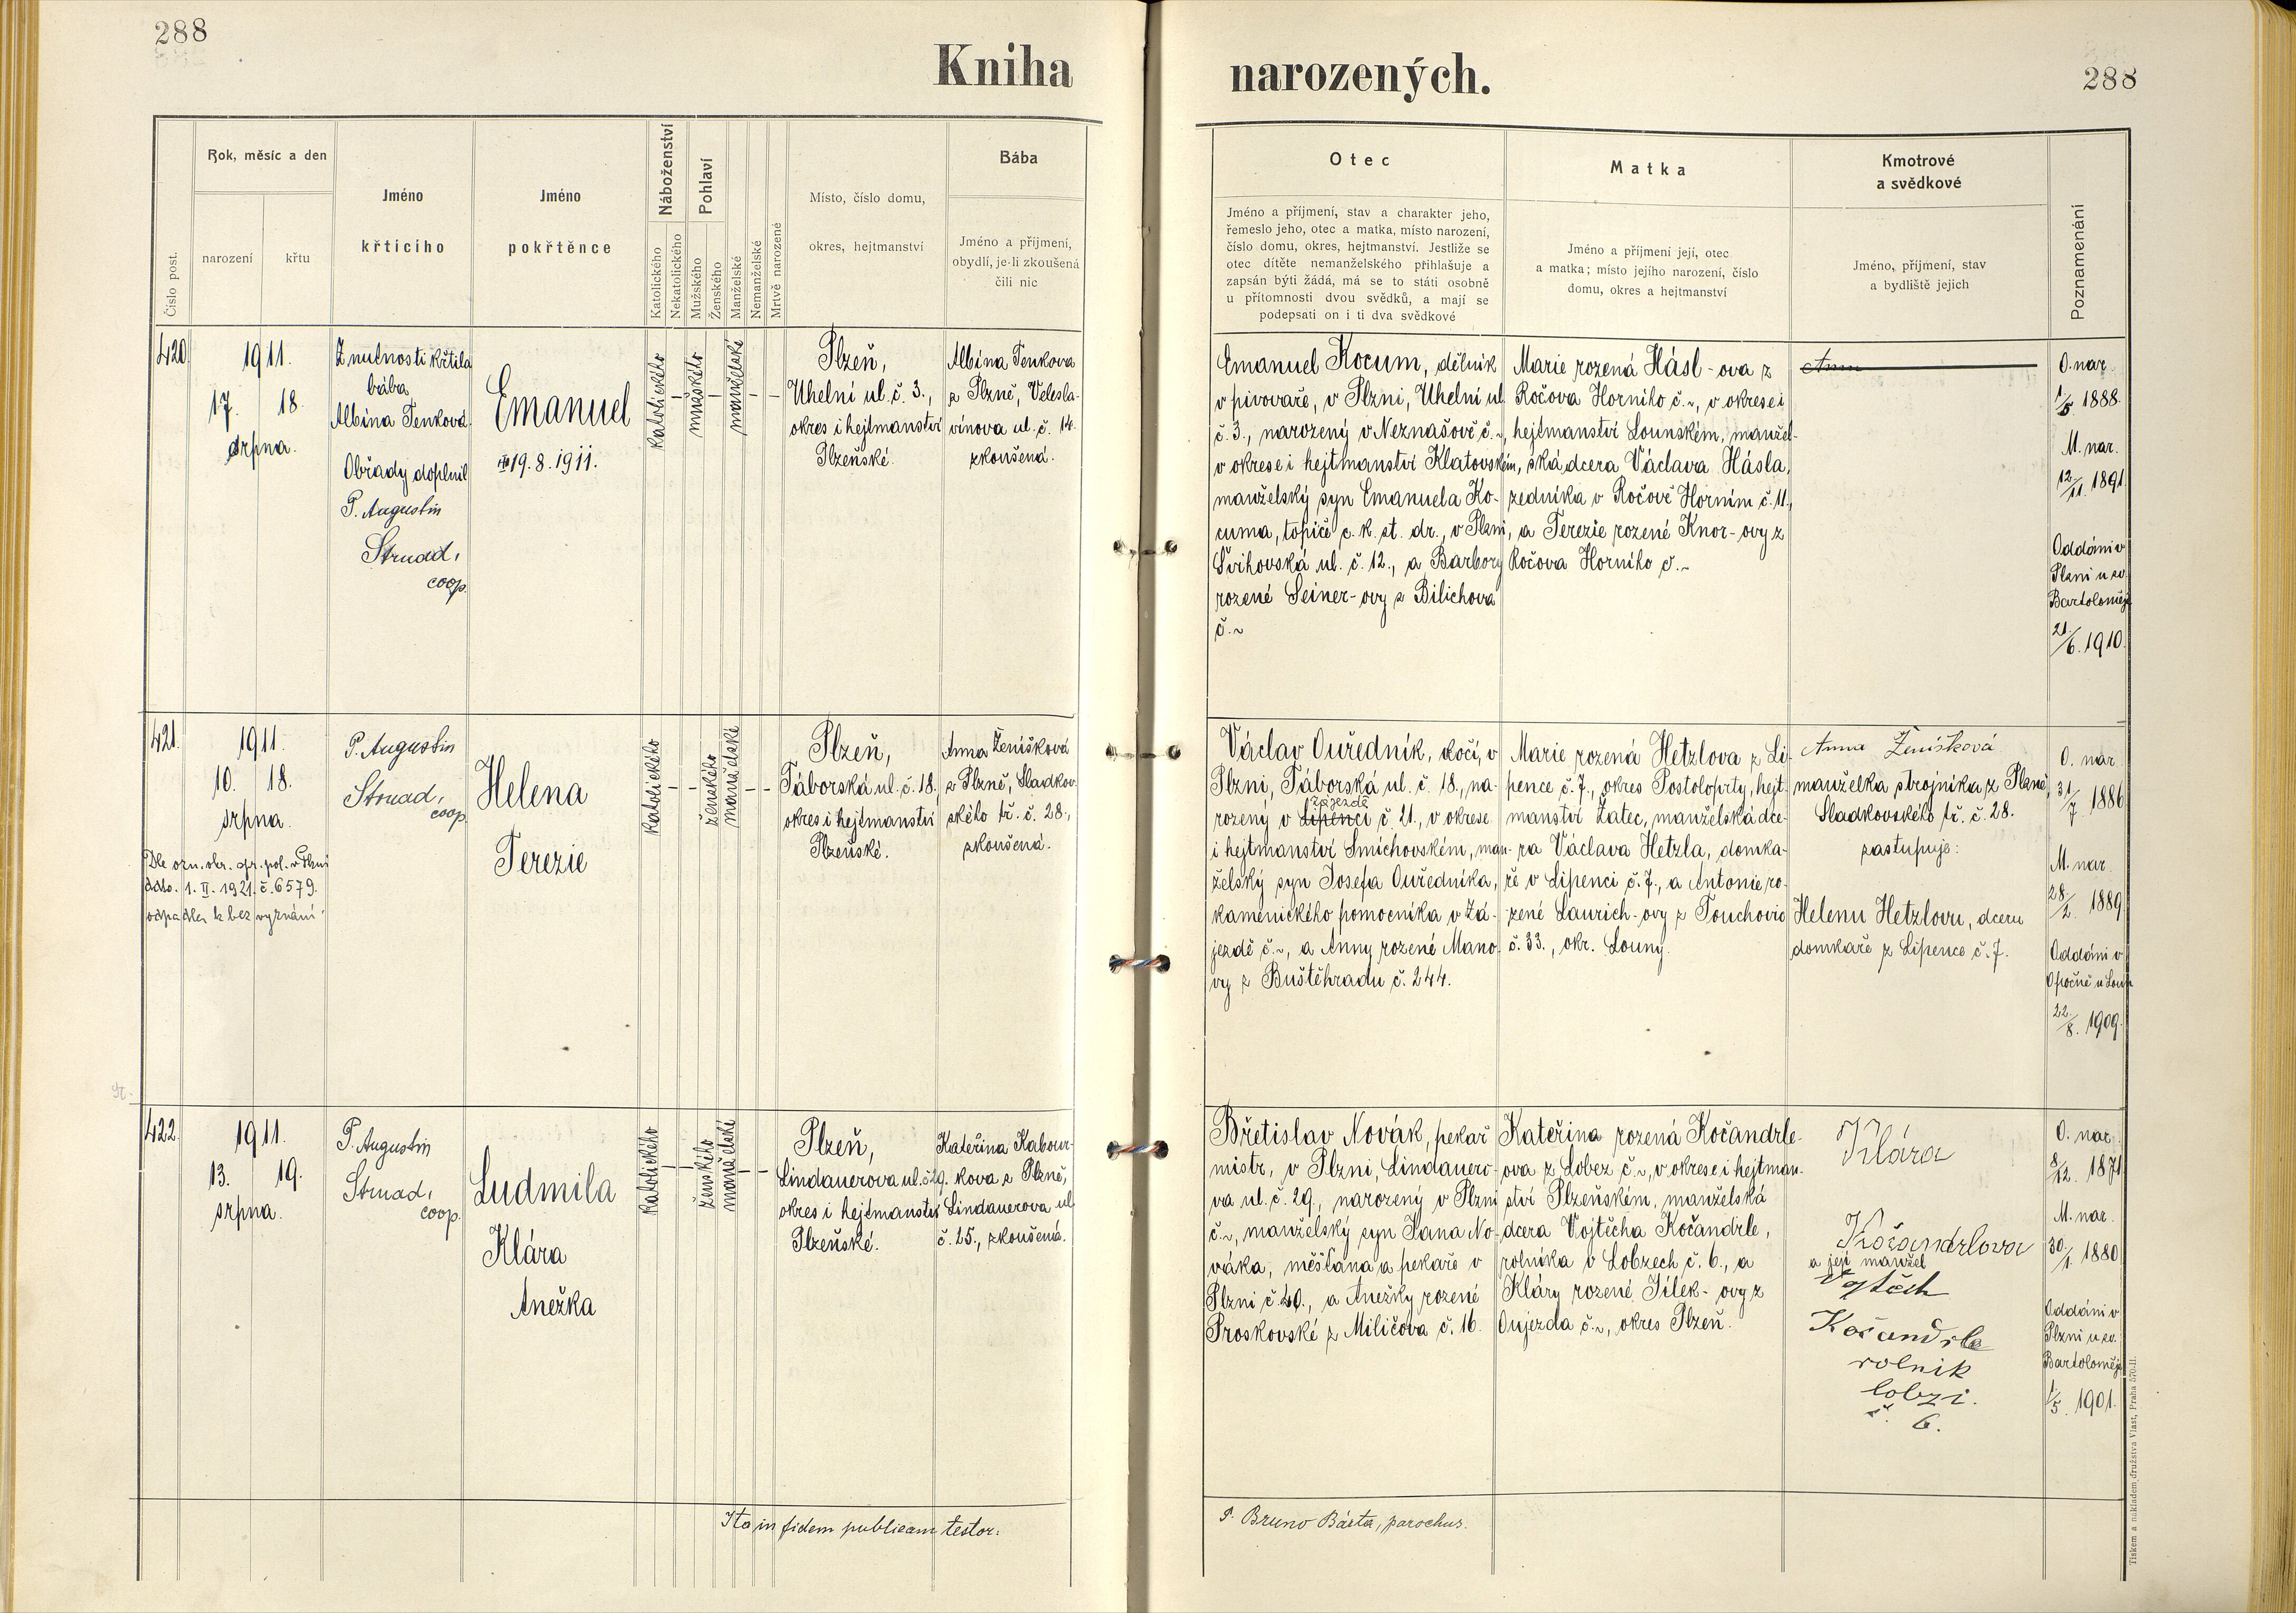 288
Kniha
narozených.
288
Číslo post.
Rok, měsíc a den
narození
křtu
Jméno
křtícího
Jméno
pokřtěnce
Náboženství
Katolického
Nekatolického
Pohlaví
Mužského
Ženského
Manželské
Nemanželské
Mrtvě narozené
Místo, číslo domu,
okres, hejtmanství
Bába
Jméno a příjmení,
obydlí, je-li zkoušená
čili nic
Otec
Jméno a příjmení, stav a charakter jeho,
řemeslo jeho, otec a matka, místo narození,
číslo domu, okres, hejtmanství. Jestliže se
otec dítěte nemanželského přihlašuje a
zapsán býti žádá, má se to státi osobně
u přítomnosti dvou svědků, a mají se
podepsati on i ti dva svědkové
Matka
Jméno a příjmení její, otec
a matka; místo jejího narození, číslo
domu, okres a hejtmanství
Kmotrové
a svědkové
Jméno, příjmení, stav
a bydliště jejich
Poznamenání
420.
1911.
17. 18.
srpna.
Z nutnosti křtila
bába
Albina Tenková.
Obřady doplnil
P. Augustin
Strnad,
coop.
Emanuel
19. 8. 1911.
katolického
–
mužského
–
manželské
– –
Plzeň,
Uhelní ul. č. 3.,
okres i hejtmanství
Plzeňské.
Albina Tenkova
z Plzně, Velesla-
vínova ul. č. 14.
zkoušená.
Emanuel Kocum, dělník
v pivovaře, v Plzni, Uhelní ul.
č. 3., narozený v Neznašově č. ~,
v okrese i hejtmanství Klatovském,
manželský syn Emanuela Ko-
cuma, topiče c. k. st. dr., v Plzni,
Švihovská ul. č. 12., a Barbory
rozené Seiner-ovy z Bilichova
č. ~
Marie rozená Hásl-ova z
Ročova Horního č. ~, v okrese i
hejtmanství Lounském, manžel-
ská dcera Václava Hásla,
zedníka v Ročově Horním č. 11.,
a Terezie rozené Knor-ovy z
Ročova Horního č. ~
Ann
O. nar.
1/5. 1888.
M. nar.
12/11. 1891.
Oddáni v
Plzni u sv.
Bartoloměje
21/6. 1910.
421.
1911.
10. 18.
srpna.
Dle ozn. okr. spr. pol. v Plzni
ddto. 1. II. 1921. č. 6579.
odpadla k bez vyznání.
P. Augustin
Strnad,
coop.
Helena
Terezie
katolického
– –
ženského
manželské
– –
Plzeň,
Táborská ul. č. 18.,
okres i hejtmanství
Plzeňské.
Anna Ženíšková
z Plzně, Sladkov-
ského tř. č. 28.,
zkoušená.
Václav Ouředník, kočí, v
Plzni, Táborská ul. č. 18., na-
zájezdě
rozený v Lipenci č. 21., v okrese
i hejtmanství Smíchovském, man-
želský syn Josefa Ouředníka,
kamenického pomocníka v Zá-
jezdě č. ~, a Anny rozené Mano-
vy z Buštěhradu č. 244.
Marie rozená Hetzlova z Li-
pence č. 7., okres Postoloprty, hejt-
manství Žatec, manželská dce-
ra Václava Hetzla, domka-
ře v Lipenci č. 7., a Antonie ro-
zené Laurich-ovy z Touchovic
č. 33., okr. Louny.
Anna Ženíšková
manželka strojníka z Plzně,
Sladkovského tř. č. 28.
zastupuje:
Helenu Hetzlovu, dceru
domkaře z Lipence č. 7.
O. nar.
31/7. 1886
M. nar.
28/2. 1889.
Oddáni v
Opočně u Loun
22/8. 1909.
422.
1911.
13. 19.
srpna.
P. Augustin
Strnad,
coop.
Ludmila
Klára
Anežka
katolického
– –
ženského
manželské
– –
Plzeň,
Lindauerova ul. č. 29.
okres i hejtmanství
Plzeňské.
Kateřina Kabour-
kova z Plzně,
Lindauerova ul.
č. 25., zkoušená.
Břetislav Novák, pekař
mistr, v Plzni, Lindauero-
va ul. č. 29., narozený v Plzni
č. ~, manželský syn Jana No-
váka, měšťana a pekaře v
Plzni č. 40., a Anežky rozené
Proskovské z Miličova č. 16.
Kateřina rozená Kočandrle-
ova z Lobez č. ~, v okrese i hejtman-
ství Plzeňském, manželská
dcera Vojtěcha Kočandrle,
rolníka v Lobzech č. 6., a
Kláry rozené Jílek-ovy z
Oujezda č. ~, okres Plzeň.
Klára
Kočandrlova
a její manžel
Vojtěch
Kočandrle
rolník
lobzi.
č. 6.
O. nar.
8/12. 1871.
M. nar.
30/1. 1880
Oddáni v
Plzni u sv.
Bartoloměje
1/5. 1901.
Ita in fidem publicam testor:
P. Bruno Bárta, parochus.
Tiskem a nákladem družstva Vlast, Praha 570-II.